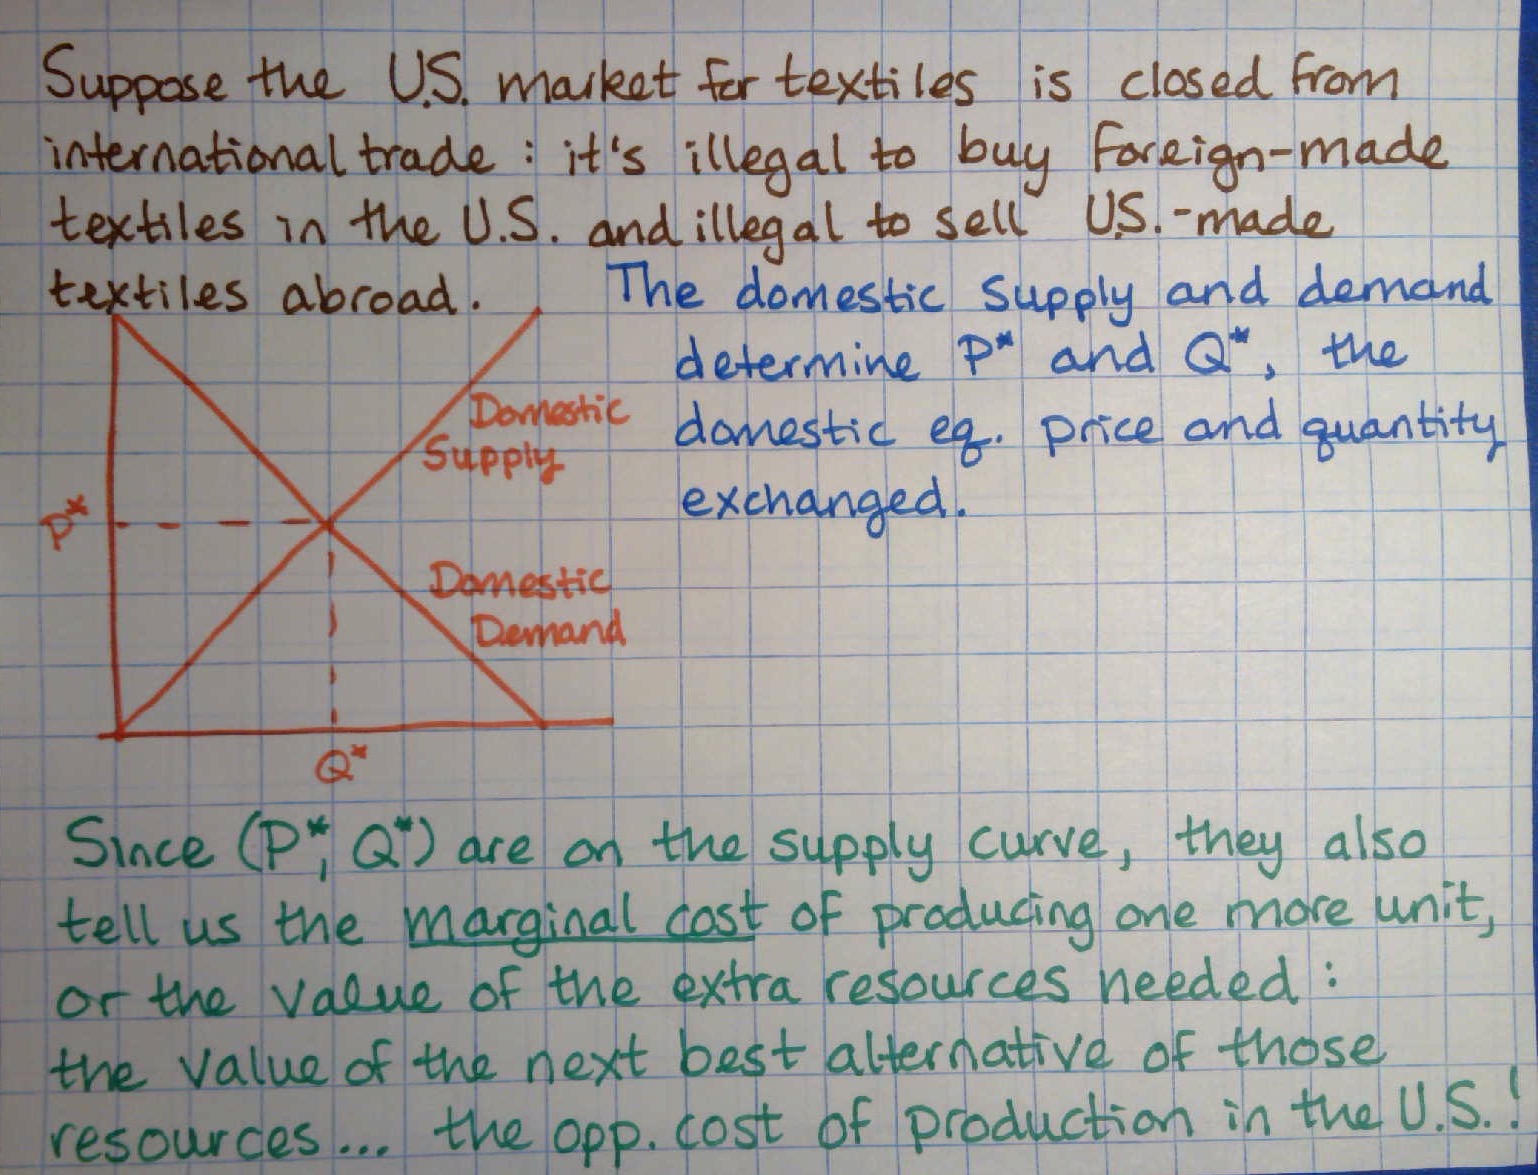 Suppose the U.S. market for textiles is closed from
international trade: it's illegal to buy foreign-made
textiles in the U.S. and illegal to sell U.S.-made
textiles abroad.
The domestic supply and demand
determine P* and Q*, the
domestic eq. price and quantity
exchanged.
Domestic
Supply
P*
Domestic
Demand
Q*
Since (P*, Q*) are on the supply curve, they also
tell us the marginal cost of producing one more unit,
or the value of the extra resources needed:
the value of the next best alternative of those
resources... the opp. cost of production in the U.S.!